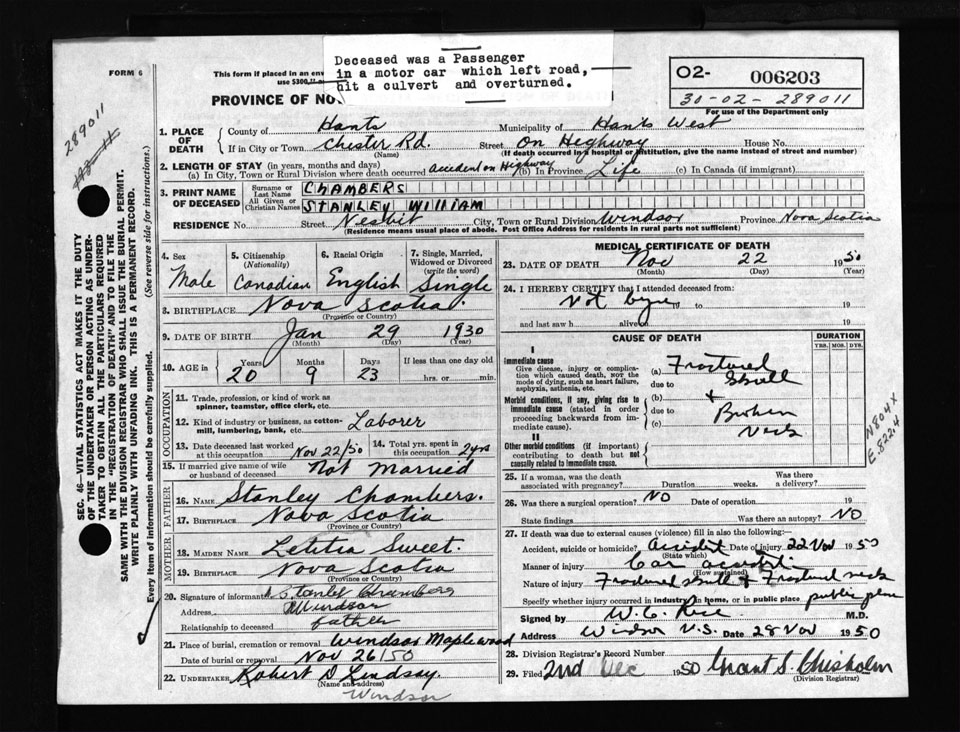 Deceased was a Passenger
in a motor car which left road,
hit a culvert and overturned.
FORM 6
This form if placed in an env
use $300
PROVINCE OF NO
O2- 006203
30-02-289011
For use of the Department only
289011
1. PLACE OF DEATH County of Hants Municipality of Hants West
If in City or Town Chester Rd. (Name) Street On Highway House No.
(If death occurred in a hospital or institution, give the name instead of street and number)
2. LENGTH OF STAY (in years, months and days)
(a) In City, Town or Rural Division where death occurred accident on Highway (b) In Province Life (c) In Canada (if immigrant)
3. PRINT NAME OF DECEASED Surname or Last Name CHAMBERS
All Given or Christian Names STANLEY WILLIAM
RESIDENCE No. Street Nesbit City, Town or Rural Division Windsor Province Nova Scotia
(Residence means usual place of abode. Post Office Address for residents in rural parts not sufficient)
SEC. 46—VITAL STATISTICS ACT MAKES IT THE DUTY
OF THE UNDERTAKER OR PERSON ACTING AS UNDER-
TAKER TO OBTAIN ALL THE PARTICULARS REQUIRED
IN THE "REGISTRATION OF DEATH" AND TO FILE THE
SAME WITH THE DIVISION REGISTRAR WHO SHALL ISSUE THE BURIAL PERMIT.
WRITE PLAINLY WITH UNFADING INK. THIS IS A PERMANENT RECORD.
Every item of information should be carefully supplied. (See reverse side for instructions.)
4. Sex Male
5. Citizenship (Nationality) Canadian
6. Racial Origin English
7. Single, Married, Widowed or Divorced (write the word) Single
8. BIRTHPLACE Nova Scotia
(Province or Country)
9. DATE OF BIRTH Jan 29 1930
(Month) (Day) (Year)
10. AGE in Years 20 Months 9 Days 23 If less than one day old
hrs. or min.
OCCUPATION
11. Trade, profession, or kind of work as
spinner, teamster, office clerk, etc.
12. Kind of industry or business, as cotton-
mill, lumbering, bank, etc. Laborer
13. Date deceased last worked at this occupation Nov 22/50
14. Total yrs. spent in this occupation 2 yrs
15. If married give name of wife
or husband of deceased Not Married
FATHER
16. NAME Stanley Chambers.
17. BIRTHPLACE Nova Scotia
(Province or Country)
MOTHER
18. MAIDEN NAME Letitia Sweet.
19. BIRTHPLACE Nova Scotia
(Province or Country)
20. Signature of informant Stanley Chambers
Address Windsor
Relationship to deceased father
21. Place of burial, cremation or removal Windsor Maplewood
Date of burial or removal Nov 26/50
22. UNDERTAKER Robert D Lindsay.
(Name and address)
Windsor
MEDICAL CERTIFICATE OF DEATH
23. DATE OF DEATH Nov 22 1950
(Month) (Day) (Year)
24. I HEREBY CERTIFY that I attended deceased from:
Not 19 to 19
and last saw h alive on 19
CAUSE OF DEATH
DURATION
YRS. MOS. DYS.
I
Immediate cause
Give disease, injury or complica-
tion which caused death, NOT the
mode of dying, such as heart failure,
asphyxia, asthenia, etc.
(a) Fractured
due to Skull
Morbid conditions, if any, giving rise to
immediate cause (stated in order
proceeding backwards from im-
mediate cause).
(b) +
due to Broken
(c) Neck
II
Other morbid conditions (if important)
contributing to death but not
causally related to immediate cause.
N804X
E.8224
25. If a woman, was the death
associated with pregnancy? Duration weeks. Was there
a delivery?
26. Was there a surgical operation? NO Date of operation 19
State findings Was there an autopsy? NO
27. If death was due to external causes (violence) fill in also the following:—
Accident, suicide or homicide? Accident Date of injury 22 Nov 1950
(State which)
Manner of injury Car accident
(How sustained)
Nature of injury Fractured skull + Fractured neck
Specify whether injury occurred in industry, in home, or in public place public place
Signed by W. C. M.D.
Address Windsor N.S. Date 28 Nov 1950
28. Division Registrar's Record Number
29. Filed 2nd Dec 1950 Grant S. Chisholm
(Division Registrar)